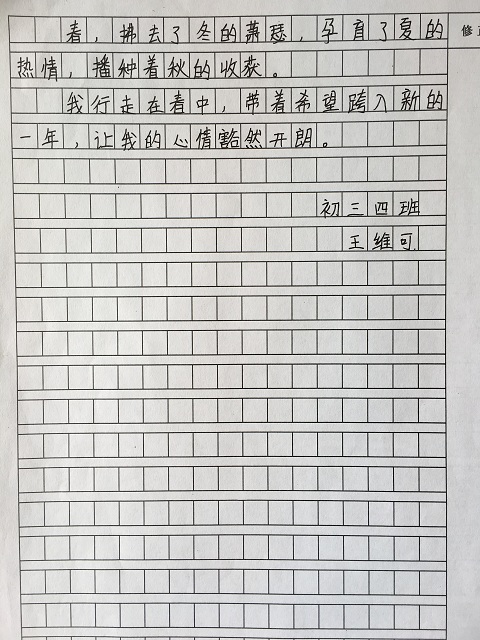 春，拂去了冬的萧瑟，孕育了夏的
修正
热情，播种着秋的收获。
我行走在春中，带着希望跨入新的
一年，让我的心情豁然开朗。
初三四班
王维可